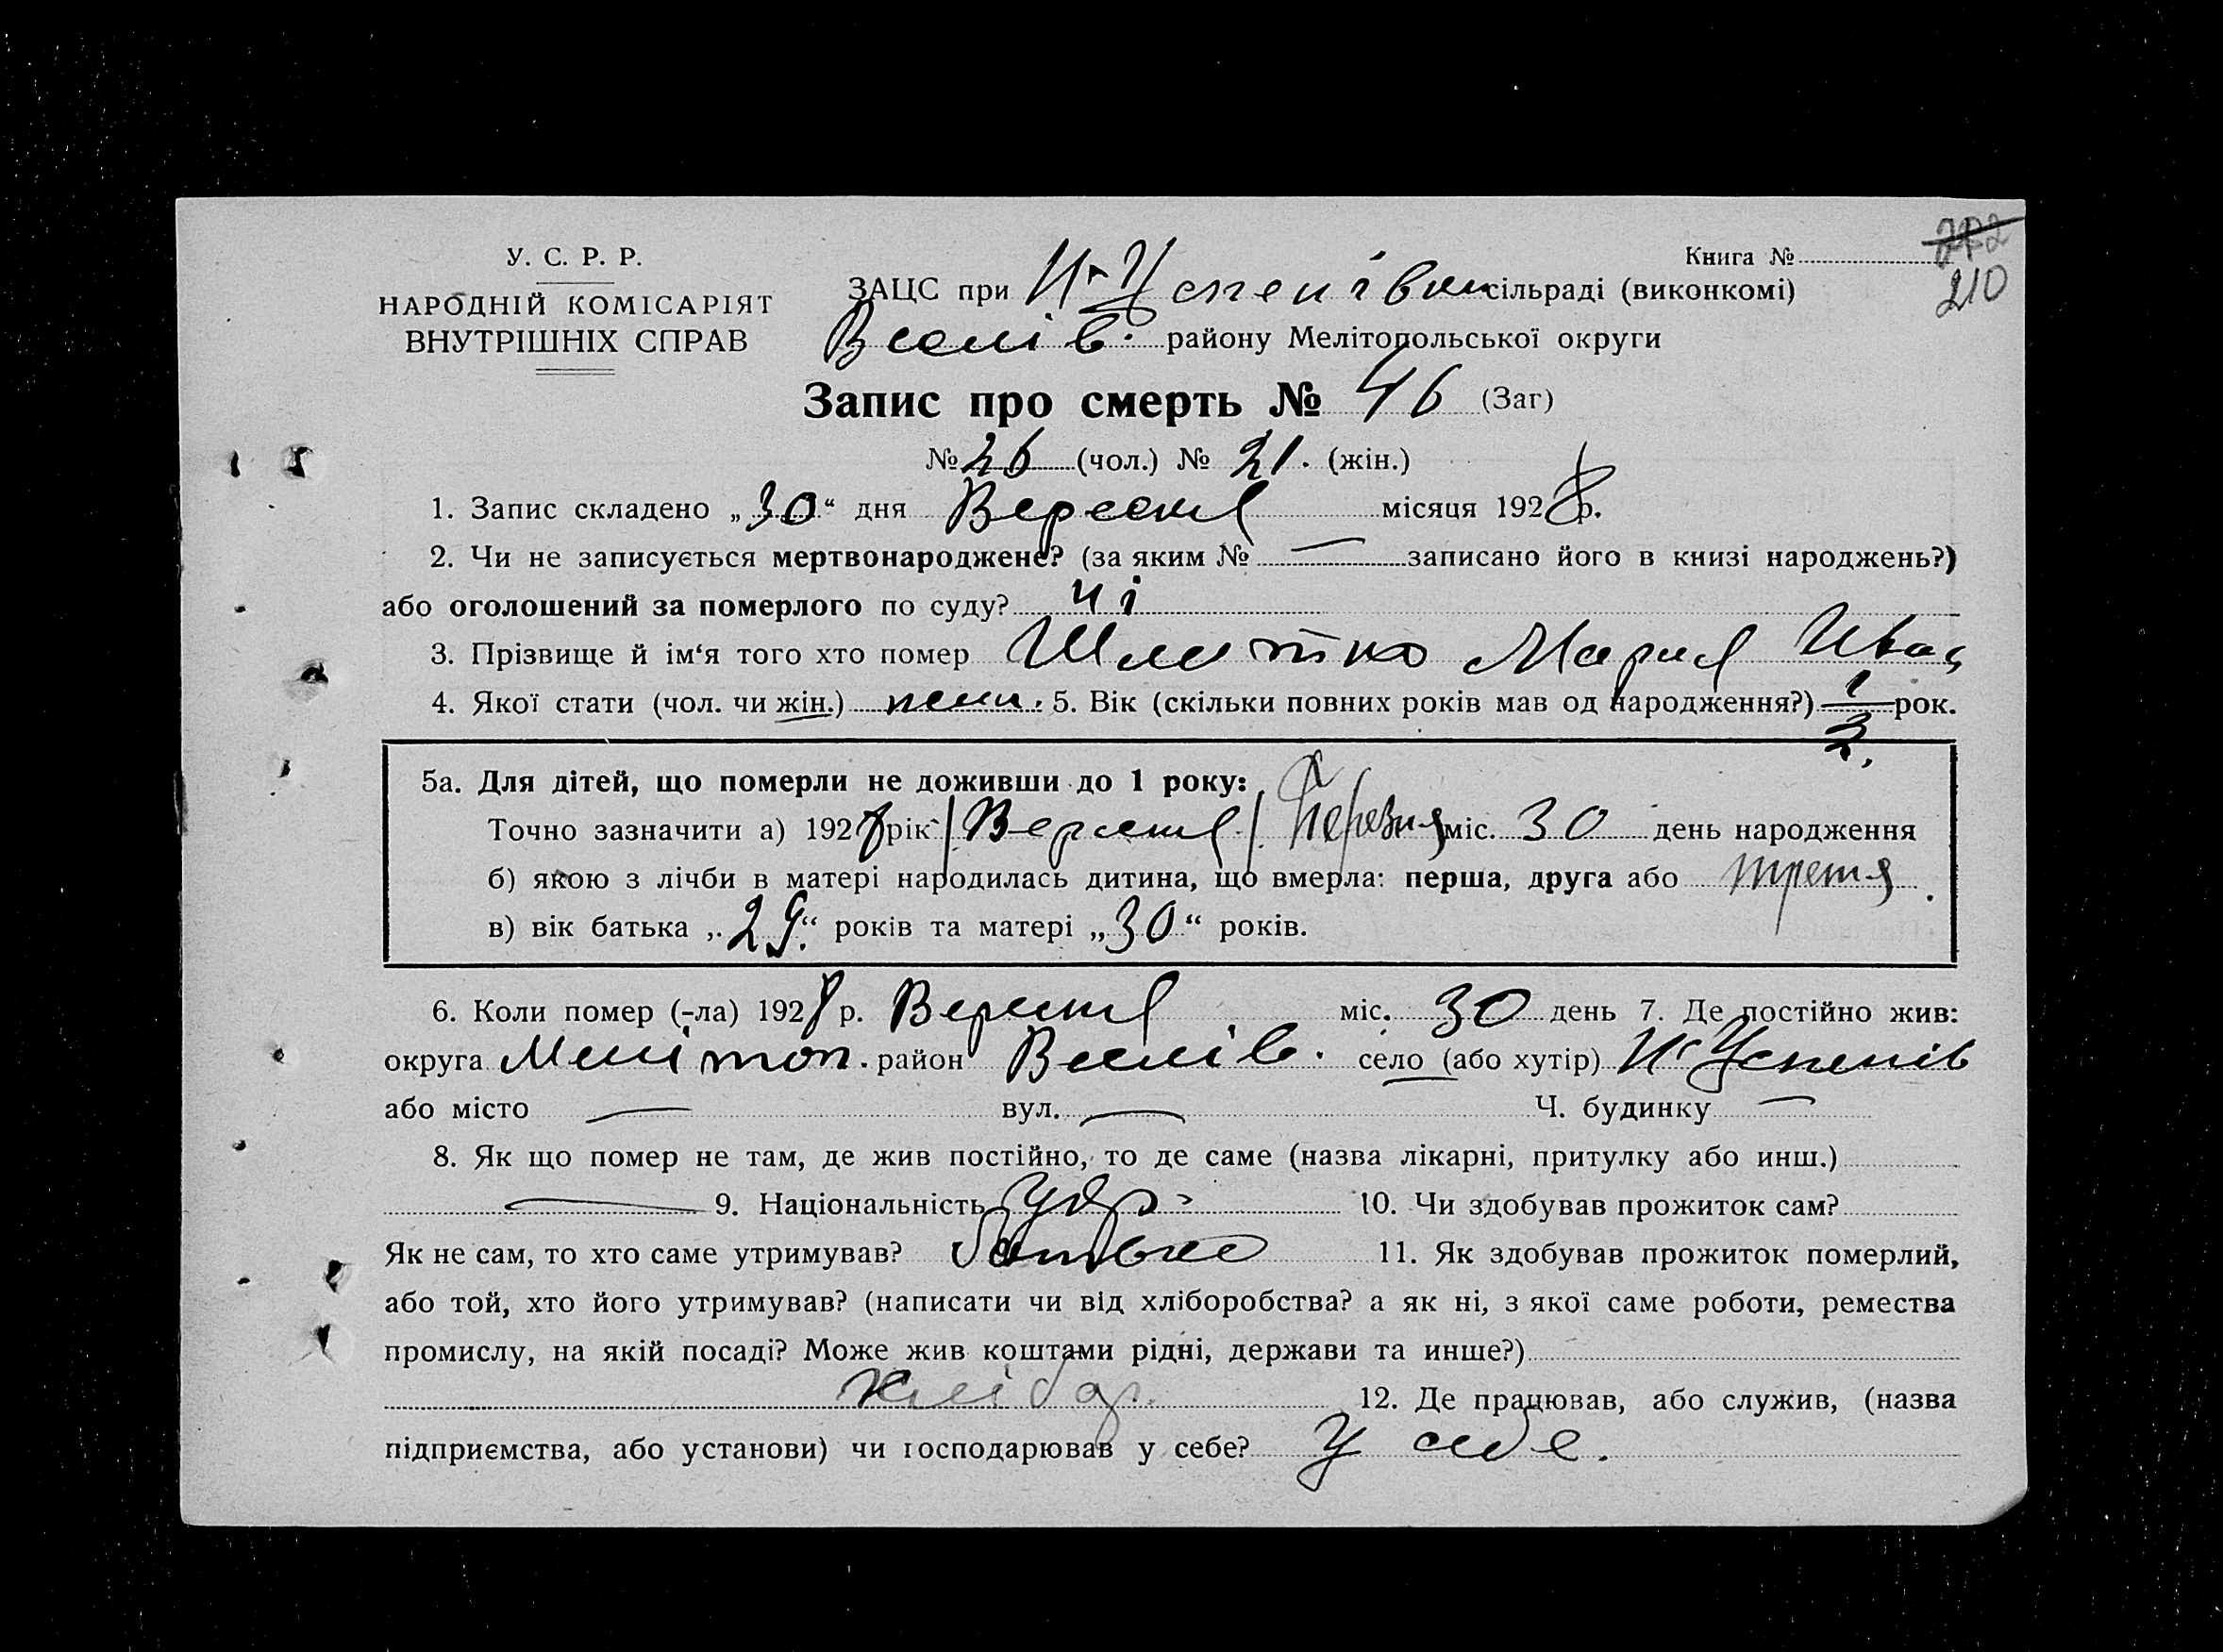 У. С. Р. Р.
НАРОДНІЙ КОМІСАРІЯТ
ВНУТРІШНІХ СПРАВ
Книга №
210
ЗАЦС при Н-Успенівки сільраді (виконкомі)
Веселів. району Мелітопольської округи
Запис про смерть № 46 (Заг)
№ (чол.) № 21. (жін.)
1. Запис складено „30“ дня Вересня місяця 1928 р.
2. Чи не записується мертвонароджене? (за яким № — записано його в книзі народжень?)
або оголошений за померлого по суду? ні
3. Прізвище й ім‘я того хто помер Мария Иван
4. Якої стати (чол. чи жін.) 5. Вік (скільки повних років мав од народження?) рок.
5а. Для дітей, що померли не доживши до 1 року:
Точно зазначити а) 1928 рік Вересня міс. 30 день народження
б) якою з лічби в матері народилась дитина, що вмерла: перша, друга або третя.
в) вік батька „29“ років та матері „30“ років.
6. Коли помер (-ла) 1928 р. Вересня міс. 30 день 7. Де постійно жив:
округа Мелітоп. район Веселів. село (або хутір) Н-Успенів
або місто — вул. — Ч. будинку —
8. Як що помер не там, де жив постійно, то де саме (назва лікарні, притулку або инш.)
— 9. Національність укр. 10. Чи здобував прожиток сам?
Як не сам, то хто саме утримував? батько 11. Як здобував прожиток померлий,
або той, хто його утримував? (написати чи від хліборобства? а як ні, з якої саме роботи, ремества
промислу, на якій посаді? Може жив коштами рідні, держави та инше?)
хлібор. 12. Де працював, або служив, (назва
підприємства, або установи) чи господарював у себе? У себе.